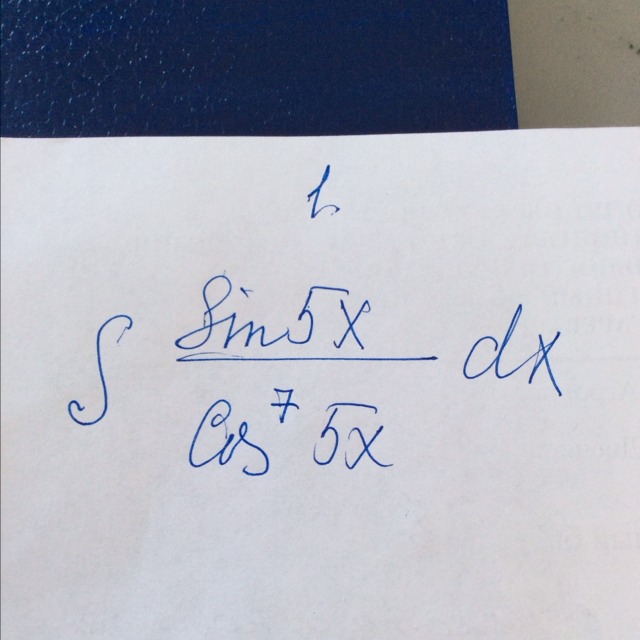 1.
∫ sin 5x / cos⁷ 5x dx